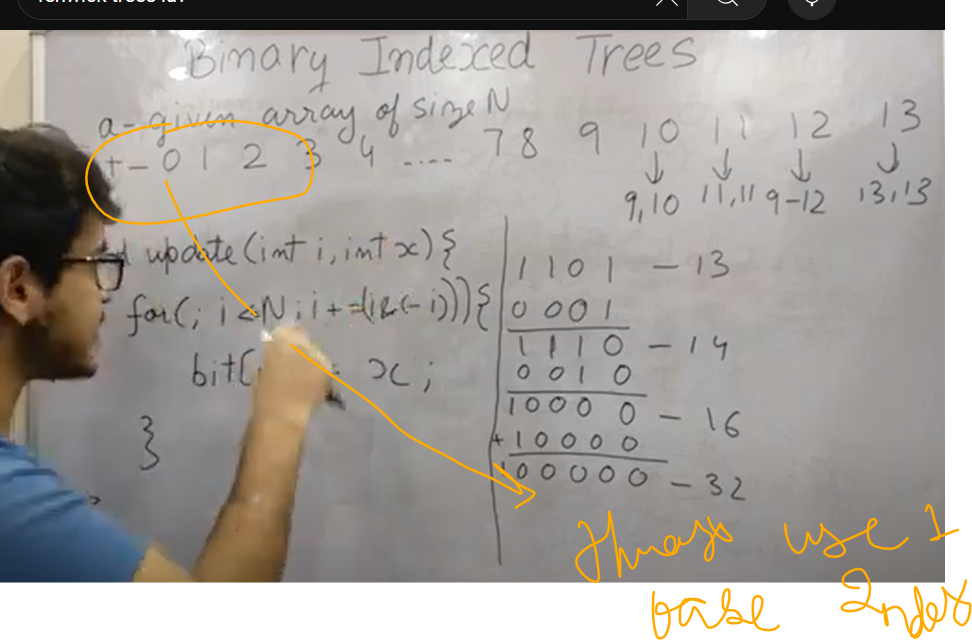 Binary Indexed Trees
a - given array of size N
0 1 2 3 4 .... 7 8 9 10 11 12 13
9,10 11,11 9-12 13,13
update(int i, int x){
for(; i<N; i+=(i&(-i))){
bit[
x;
}
1101 - 13
0001
1110 - 14
0010
10000 - 16
+10000
100000 - 32
use 1
base Index